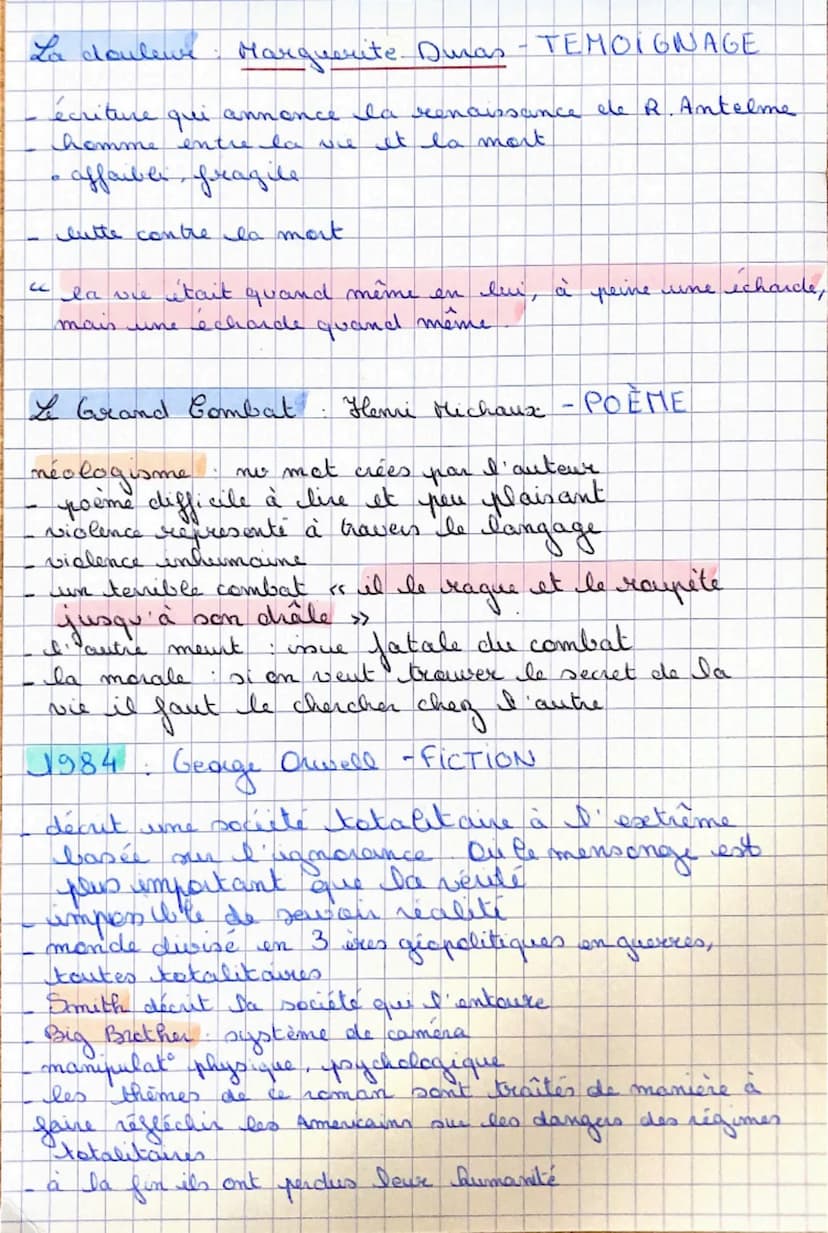 La douleur : Marguerite Duras - TEMOiGNAGE
- écriture qui annonce la renaissance de R. Antelme
- homme entre la vie et la mort
• affaibli, fragile
- lutte contre la mort
“ la vie était quand même en lui, à peine une écharde,
mais une écharde quand même.
Le Grand Combat : Henri Michaux - POÈME
néologisme : mot crées par l'auteur
- poème difficile à lire et peu plaisant
- violence représenté à travers le langage
- violence inhumaine
- un terrible combat « il le rague et le roupéte
jusqu'à son drâle »
- l'autre meurt : issue fatale du combat
- la morale : si on veut trouver le secret de la
vie il faut le chercher chez l'autre
1984 : George Orwell - FiCTiON
- décrit une société totalitaire à l'extrême
basée sur l'ignorance. Où le mensonge est
plus important que la vérité
- impossible de savoir réalité
- monde divisé en 3 ères géopolitiques en guerres,
toutes totalitaires
- Smith décrit la société qui l'entoure
- Big Brother : système de caméra
- manipulat° physique, psychologique
- les thèmes de ce roman sont traîtés de manière à
faire réfléchir les Américains sur les dangers des régimes
totalitaires
- à la fin ils ont perdus leur humanité